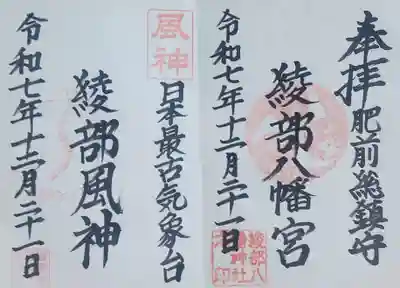 奉拝
肥前総鎮守
綾部八幡宮
令和七年十二月二十一日
綾部八
幡神社
風神
日本最古気象台
綾部風神
令和七年十二月二十一日